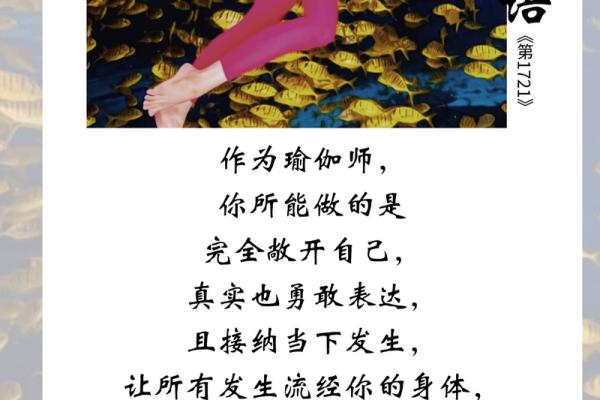 悟
《第1721》
作为瑜伽师，
你所能做的是
完全敞开自己，
真实也勇敢表达，
且接纳当下发生，
让所有发生流经你的身体，